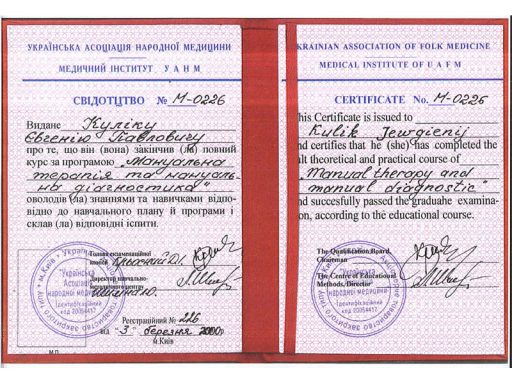 УКРАЇНСЬКА АСОЦІАЦІЯ НАРОДНОЇ МЕДИЦИНИ
МЕДИЧНИЙ ІНСТИТУТ У А Н М
СВІДОЦТВО № М-0226
Видане Куліку
Євгенію Павловичу
про те, що він (вона) закінчив (ла) повний
курс за програмою „Мануальна
терапія та мануаль-
на діагностика"
оволодів (ла) знаннями та навичками відпо-
відно до навчального плану й програми і
склав (ла) відповідні іспити.
Голова екзаменаційної
комісії
Директор навчально-
методичного центру
Реєстраційний № 226
від „3" березня 2000р
м.Київ
М.П.
Українська
Асоціація
народної медицини
Ідентифікаційний
код 20064417
KRAINIAN ASSOCIATION OF FOLK MEDICINE
MEDICAL INSTITUTE OF U A F M
CERTIFICATE No. М-0226
his Certificate is issued to
Kulik Jewgienij
nd certifies that he (she) has completed the
ull theoretical and practical course of
"Manual therapy and
manual diagnostic"
nd succesfully passed the graduahe examina-
ion, according to the educational course.
The Qualification Board,
Chairman
The Centre of Educational
Methods, Director
Українська
Асоціація
народної медицини
Ідентифікаційний
код 20064417